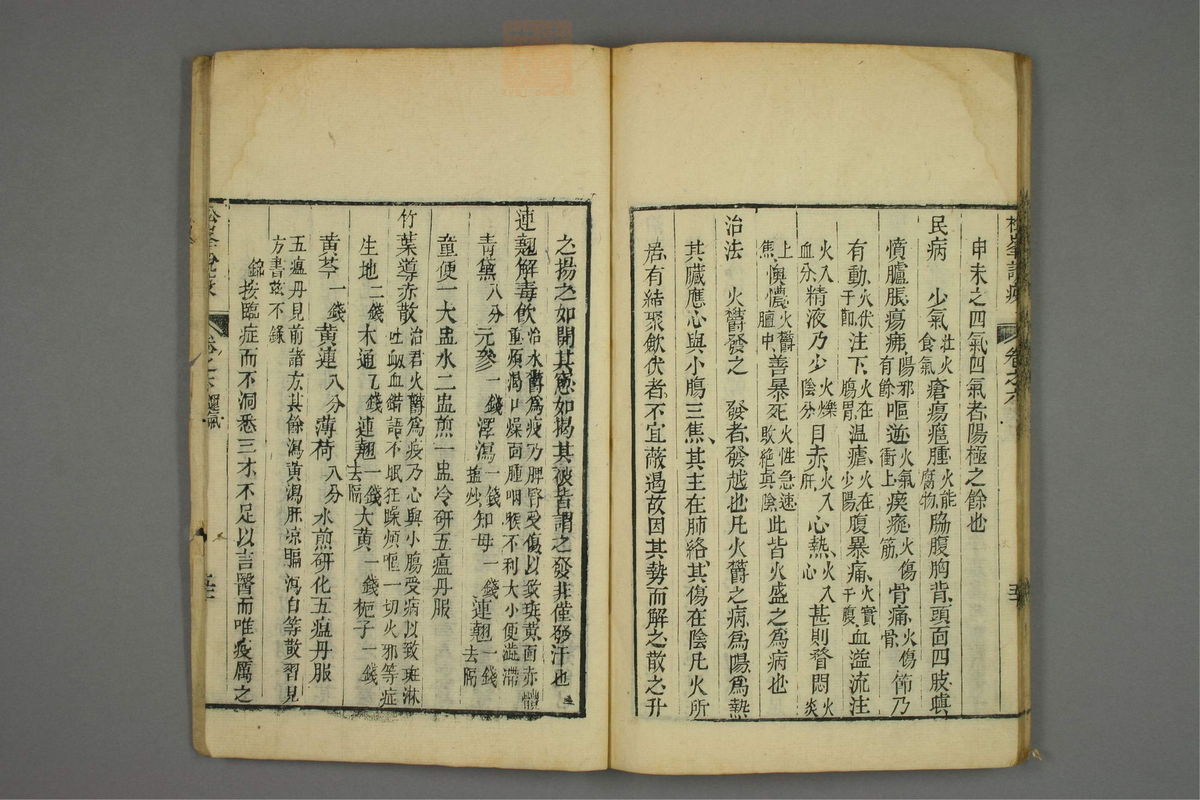 松峯說疫 卷之六
申未之四氣四氣者陽極之餘也
民病 少氣壯火食氣瘡瘍癰腫火能腐物脇腹胸背頭面四肢䐜
憤臚脹瘍痱陽邪有餘嘔逆火氣衝上瘈瘲火傷筋骨痛火傷骨節乃
有動火伏于節注下火在腸胃温瘧火在少陽腹暴痛火實于腹血溢流注
火入血分精液乃少火爍陰分目赤火入肝心熱火入心甚則瞀悶火炎
上焦懊憹火鬱膻中善暴死火性急速敗絶真陰此皆火盛之為病也
治法 火鬱發之 發者發越也凡火鬱之病為陽為熱
其臟應心與小腸三焦其主在肺絡其傷在陰凡火所
居有結聚斂伏者不宜蔽遏故因其勢而解之散之升
之揚之如開其窓如揭其被皆謂之發非僅發汗也
連翹解毒飲治火鬱為疫乃脾胃受傷以致斑黃面赤體重煩渴口燥面腫咽喉不利大小便澁滯
青黛八分元參一錢澤瀉一錢鹽炒知母一錢連翹一錢去隔
童便一大盅水二盅煎一盅冷研五瘟丹服
竹葉導赤散治君火鬱為疫乃心與小腸受病以致斑淋吐衄血錯語不眠狂躁煩嘔一切火邪等症
生地二錢木通一錢連翹一錢去隔大黃一錢梔子一錢
黃芩一錢黃連八分薄荷八分水煎研化五瘟丹服
五瘟丹見前諸方其餘瀉黃瀉肝凉膈瀉白等散習見方書玆不錄
錦按臨症而不洞悉三才不足以言醫而唯疫厲之
松峯說疫 卷之六運氣